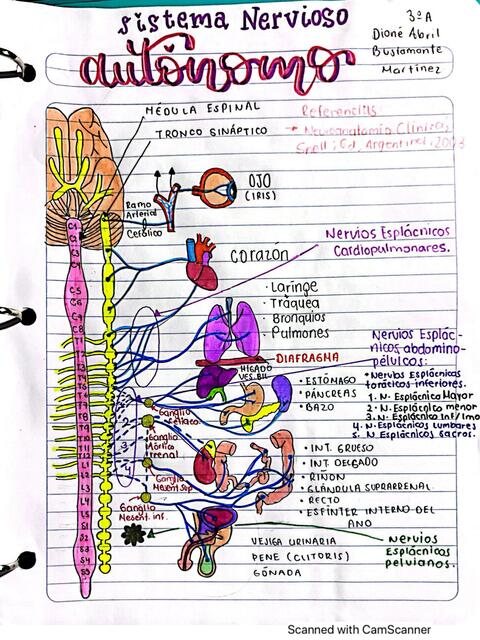 Sistema Nervioso
autónomo
3ºA
Dioné Abril
Bustamante
Martínez
MÉDULA ESPINAL
TRONCO SINÁPTICO
Referencias
Neuroanatomía Clínica,
Snell; Ed. Argentina, 
OJO
(IRIS)
Ramo
Arterial
Cefálico
Nervios Esplácnicos
Cardiopulmonares.
Corazón
· Laringe
· Tráquea
· Bronquios
· Pulmones
DIAFRAGMA
HÍGADO
VES. BIL
Nervios Esplác-
nicos abdomino-
pélvicos:
• Nervios Esplácnicos
torácicos inferiores.
1. N. Esplácnico Mayor
2. N. Esplácnico menor
3. N. Esplácnico Inf/Imo
4. N. Esplácnicos Lumbares
5. N. Esplácnicos Sacros.
• ESTÓMAGO
• PÁNCREAS
• BAZO
Ganglio
Celiaco.
Ganglio
renal
Ganglio
Mesent. Sup.
Ganglio
Mesent. inf.
• INT. GRUESO
• INT. DELGADO
• RIÑON
• GLÁNDULA SUPRARRENAL
• RECTO
• ESFINTER INTERNO DEL
ANO
VEJIGA URINARIA
PENE (CLITORIS)
GÓNADA
Nervios
Esplácnicos
pelvianos.
C1
C5
C6
C8
T1
T2
T3
T4
T5
T6
T7
T8
T9
T10
T11
T12
L1
L2
L3
L4
L5
S1
S2
S3
S4
S5
3
4
Scanned with CamScanner